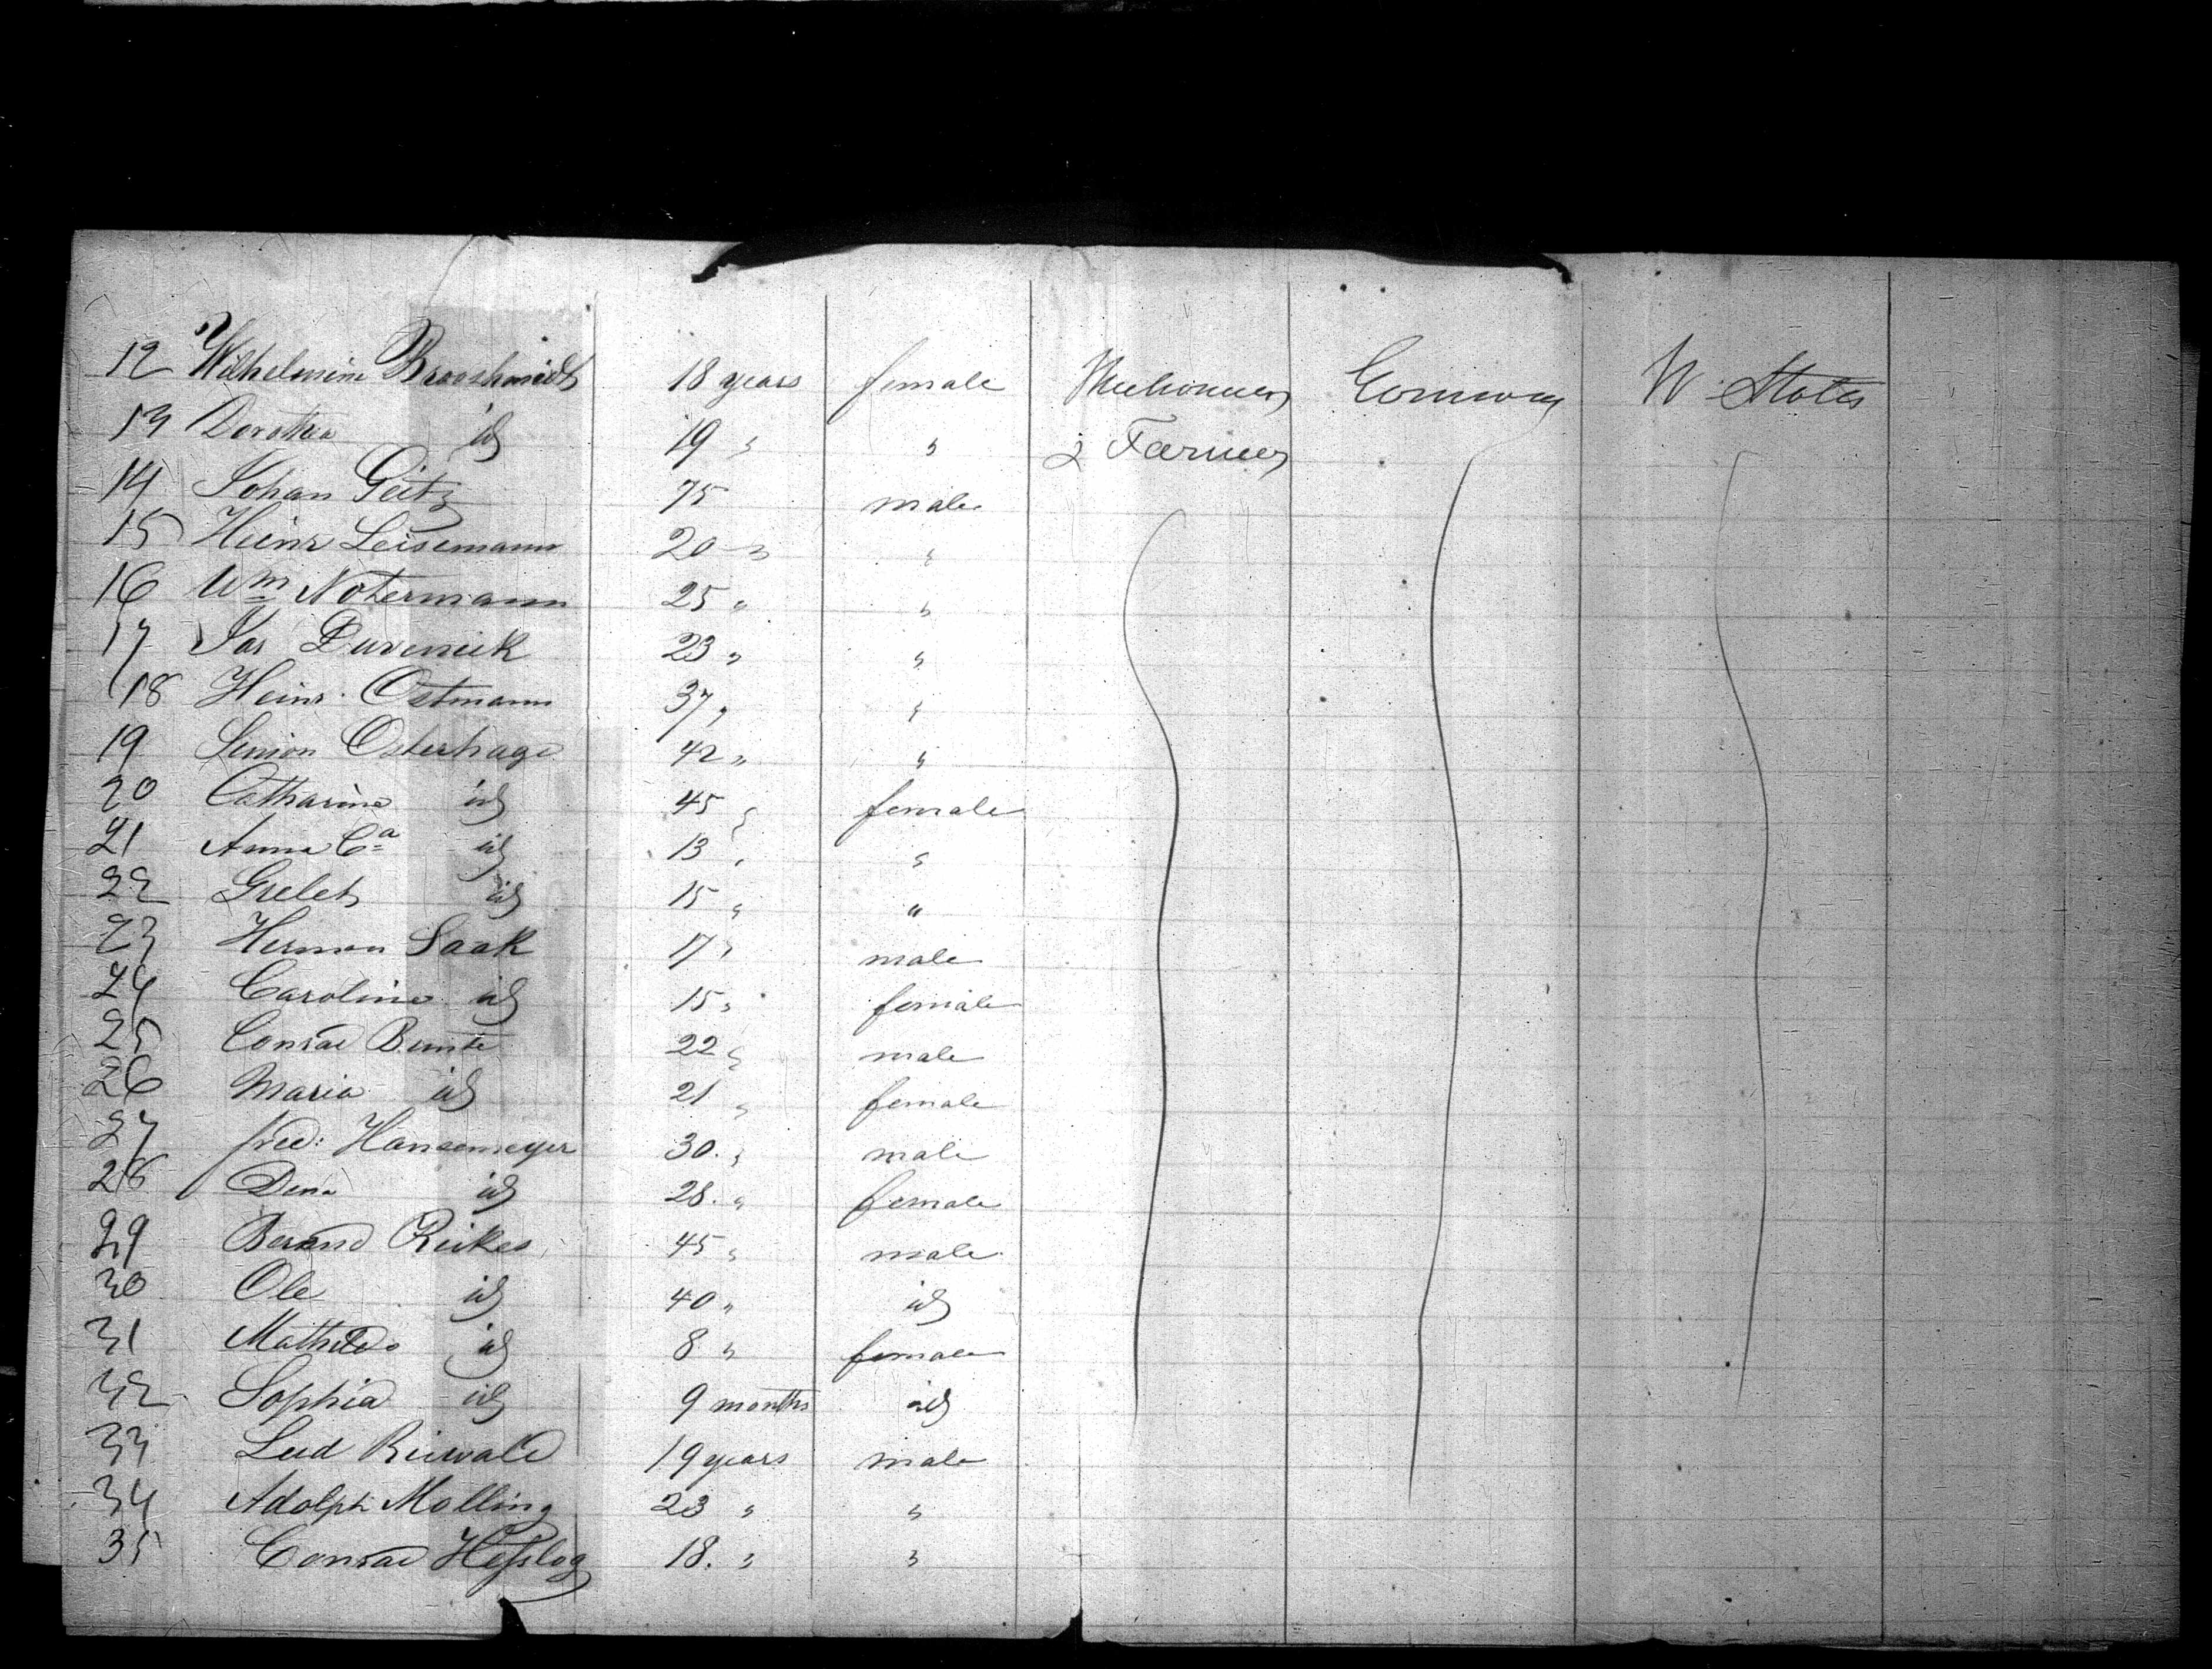 12 Wilhelmine Brooshmidt 18 years female Mechanicus Germany U. States
13 Dorothea id 19 " " & Farmers
14 Johan Geitz 75 male
15 Heinr Leisemann 20 " "
16 Wm Notermann 25 " "
17 Jas Duveneick 23 " "
18 Heinr. Ostmann 37 " "
19 Simon Osterhage 42 " "
20 Catharina id 45 " female
21 Anna Ca id 13 " "
22 Greleth id 15 " "
23 Herman Saak 17 " male
24 Carolina id 15 " female
25 Conrad Bunte 22 " male
26 Maria id 21 " female
27 fred: Hansemeyer 30. " male
28 Dena id 28. " female
29 Berand Reikes 45 " male
30 Ole id 40 " id
31 Mathilde id 8 " female
32 Sophia id 9 months id
33 Lud Riewald 19 years male
34 Adolph Molling 23 " "
35 Conrad Hesslog 18. " "